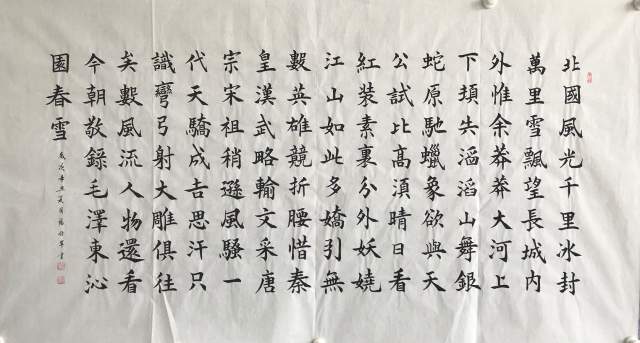 北國風光千里冰封
萬里雪飄望長城內
外惟余莽莽大河上
下頓失滔滔山舞銀
蛇原馳蠟象欲與天
公試比高湏晴日看
紅裝素裹分外妖嬈
江山如此多嬌引無
數英雄競折腰惜秦
皇漢武略輸文采唐
宗宋祖稍遜風騷一
代天驕成吉思汗只
識彎弓射大雕俱往
矣數風流人物還看
今朝敬錄毛澤東沁
園春雪
歲次辛丑